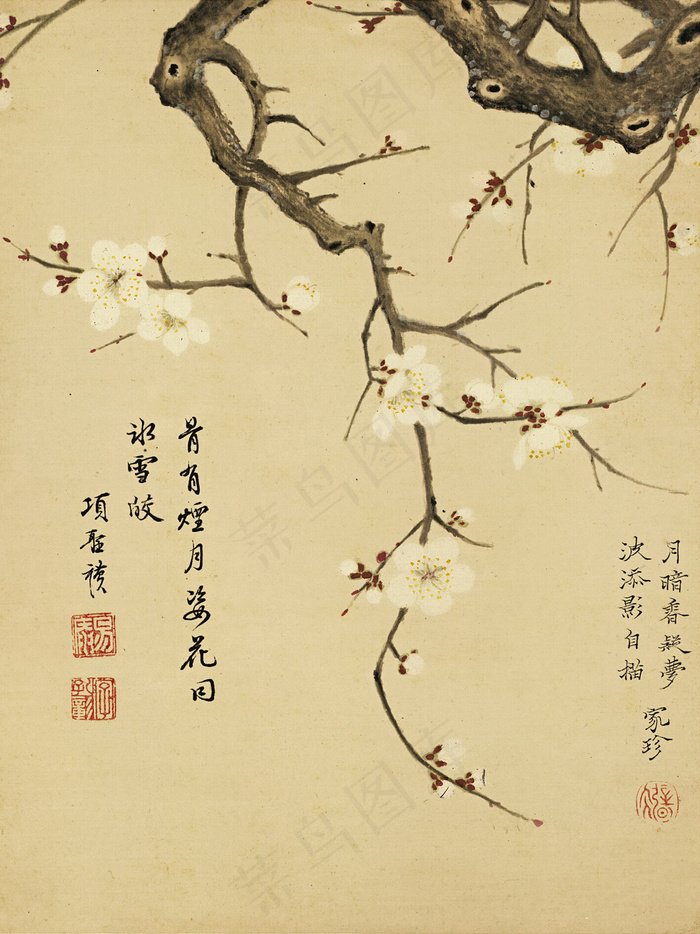 月暗香凝夢
波添影自描
家珍
骨有煙月姿花同
冰雪皎
項聖謨
菜鸟图库